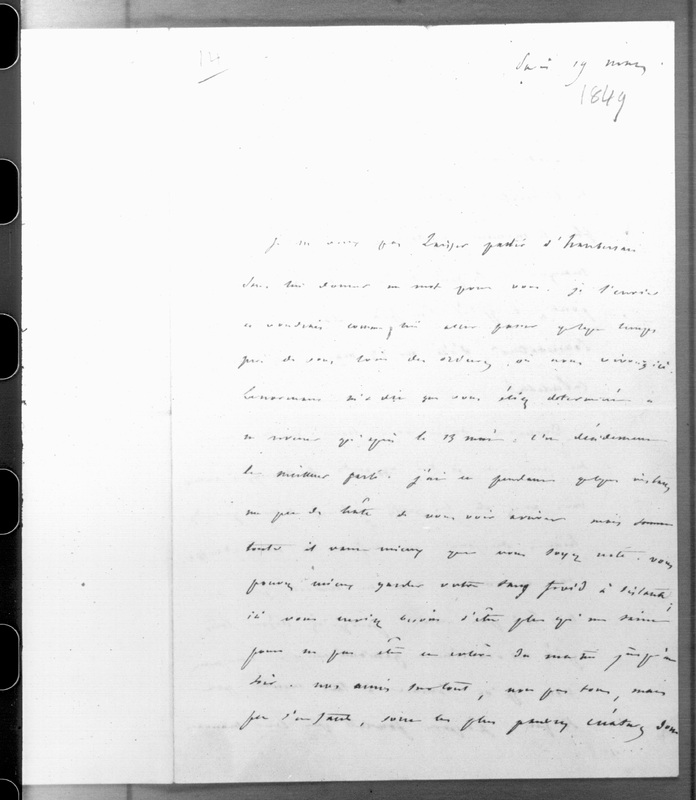 14
19 mars
1849
je ne veux pas laisser partir d'Haubersart
sans lui donner un mot pour vous. je l'envie
et voudrais comme lui aller passer quelque temps
près de vous, loin des où nous vivons ici.
Lenormant m'a dit que vous étiez déterminé à
ne revenir qu'après le 13 mai. c'est décidément
le meilleur parti. j'ai eu pendant quelques instants
un peu de hâte de vous voir arriver mais somme
toute il vaut mieux que vous soyez resté. vous
pouvez mieux garder votre sang froid à distance
ici vous auriez besoin d'être plus qu'un saint
pour ne pas être en colère du matin jusqu'au
soir. nos amis surtout, non pas tous, mais
peu s'en faut, sont les plus pauvres créatures dont